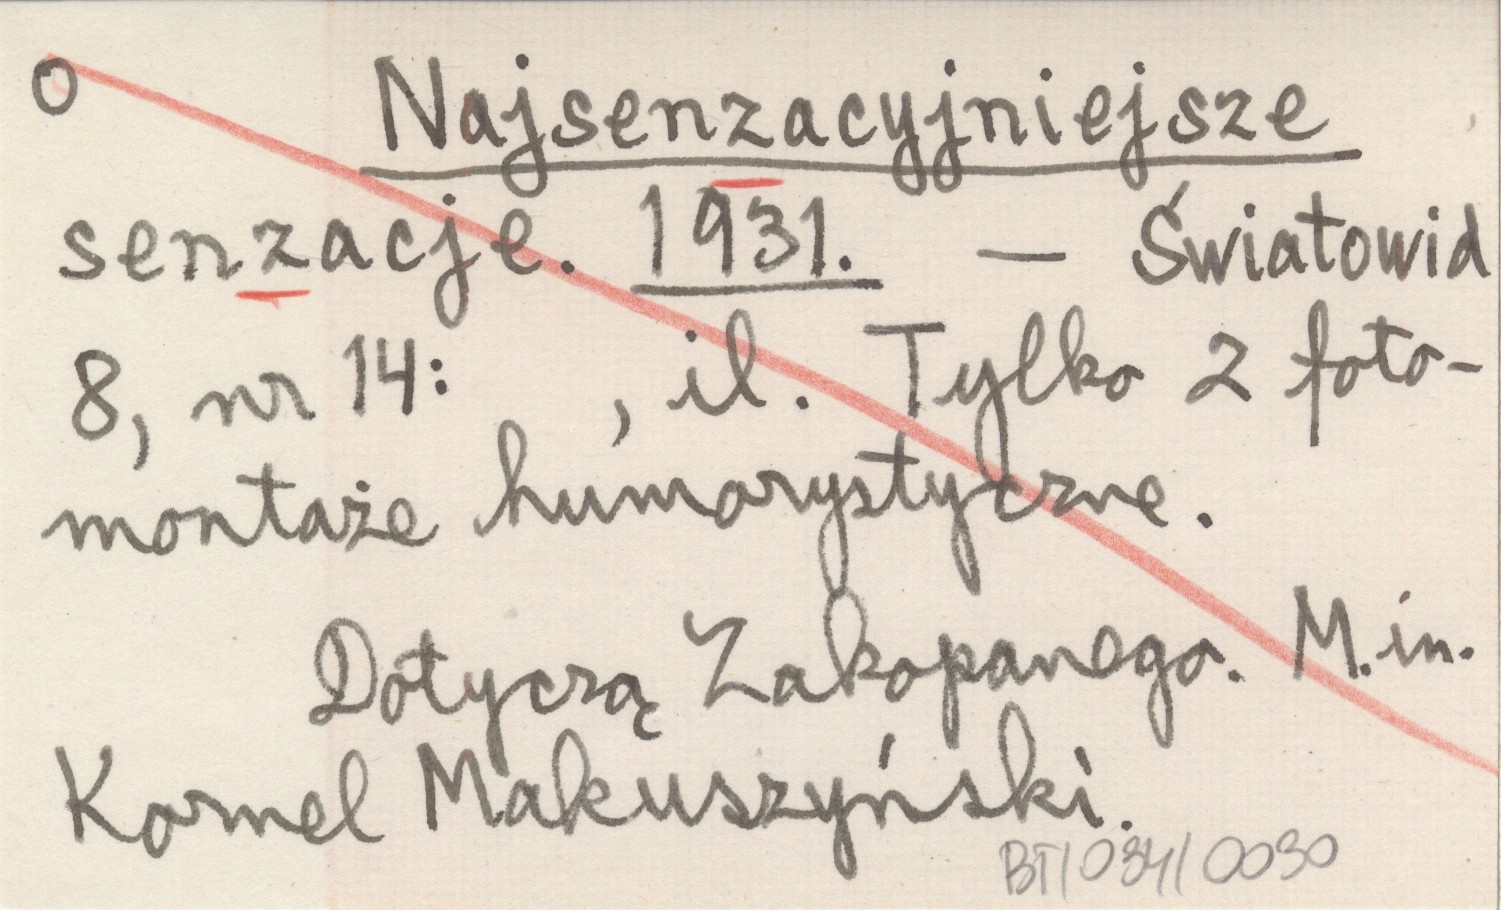 O Najsenzacyjniejsze
senzacje. 1931. — Światowid
8, nr 14: , il. Tylko 2 foto-
montaże humorystyczne.
Dotyczą Zakopanego. M.in.
Kornel Makuszyński.
BT/034/0030